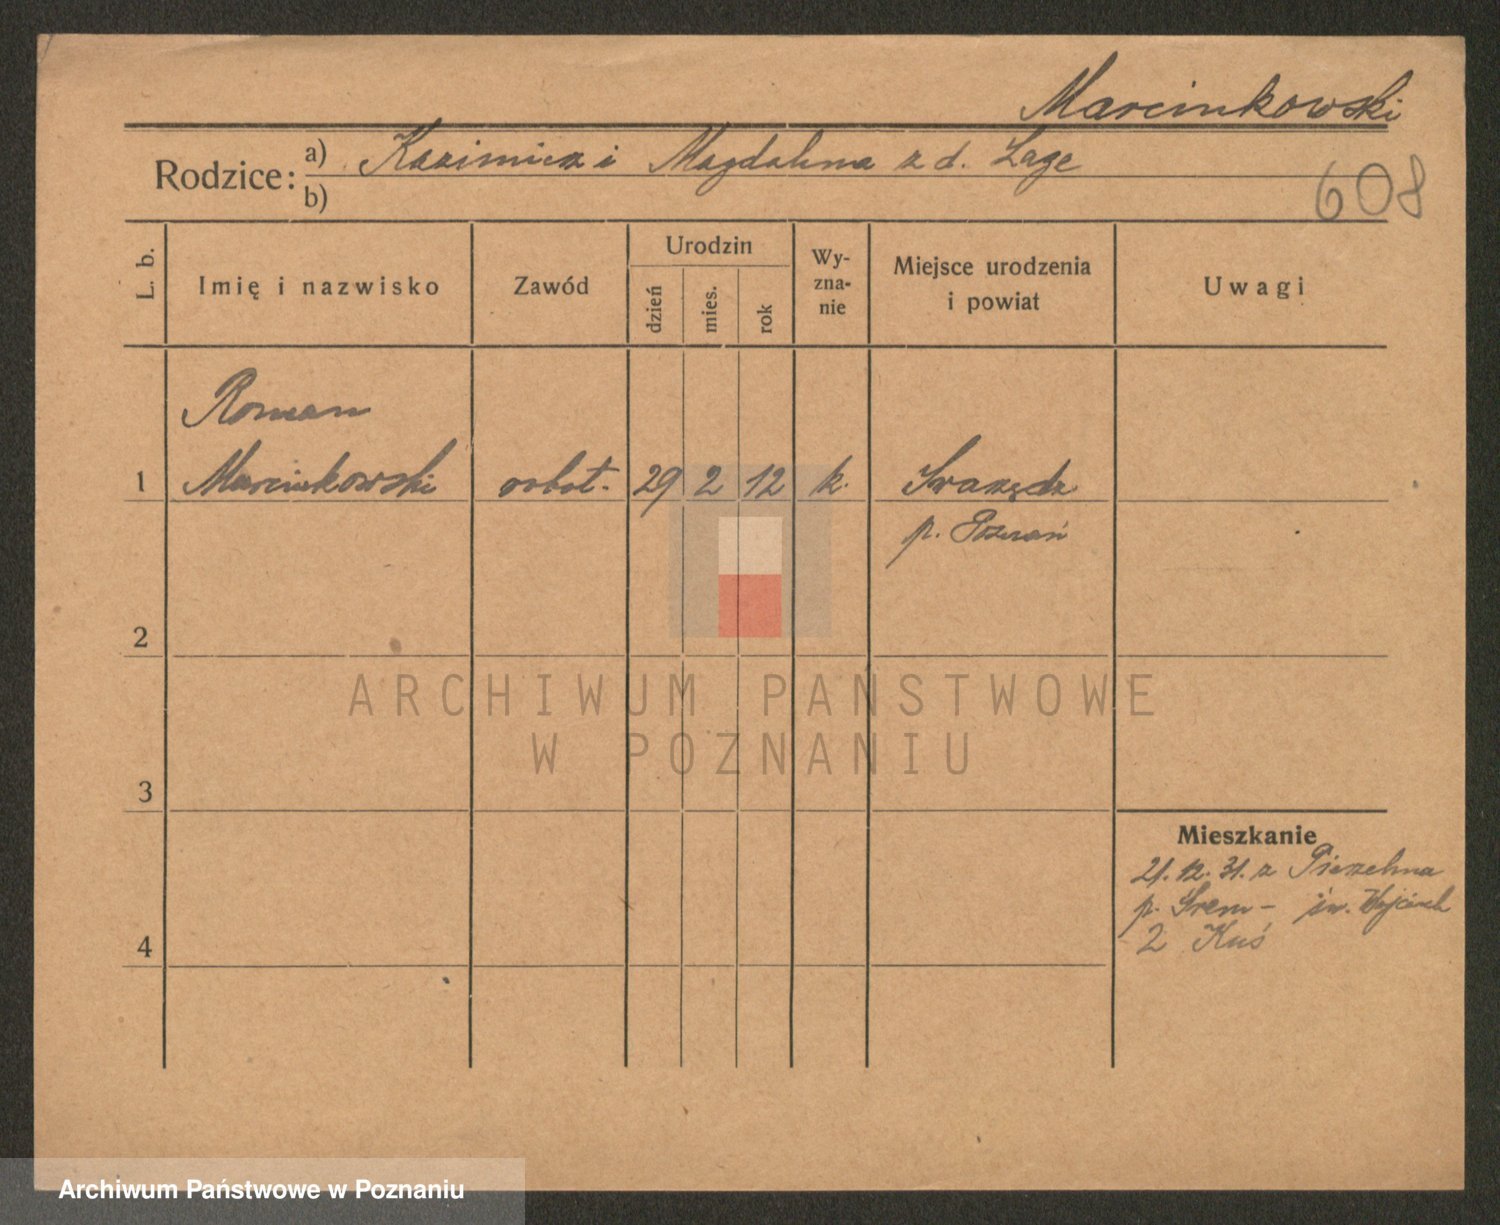 Marcinkowski
Rodzice: a) Kazimierz i Magdalena z d. Lage
b)
608
L. b.
Imię i nazwisko
Zawód
Urodzin
dzień
mies.
rok
Wy-
zna-
nie
Miejsce urodzenia
i powiat
Uwagi
Roman
1 Marcinkowski robot. 29 2 12 k. Swarzędz
p. Poznań
2
ARCHIWUM PAŃSTWOWE
W POZNANIU
3
Mieszkanie
21. 12. 31. z
p. Śrem - św. Wojciech
2 Kuś
4
Archiwum Państwowe w Poznaniu